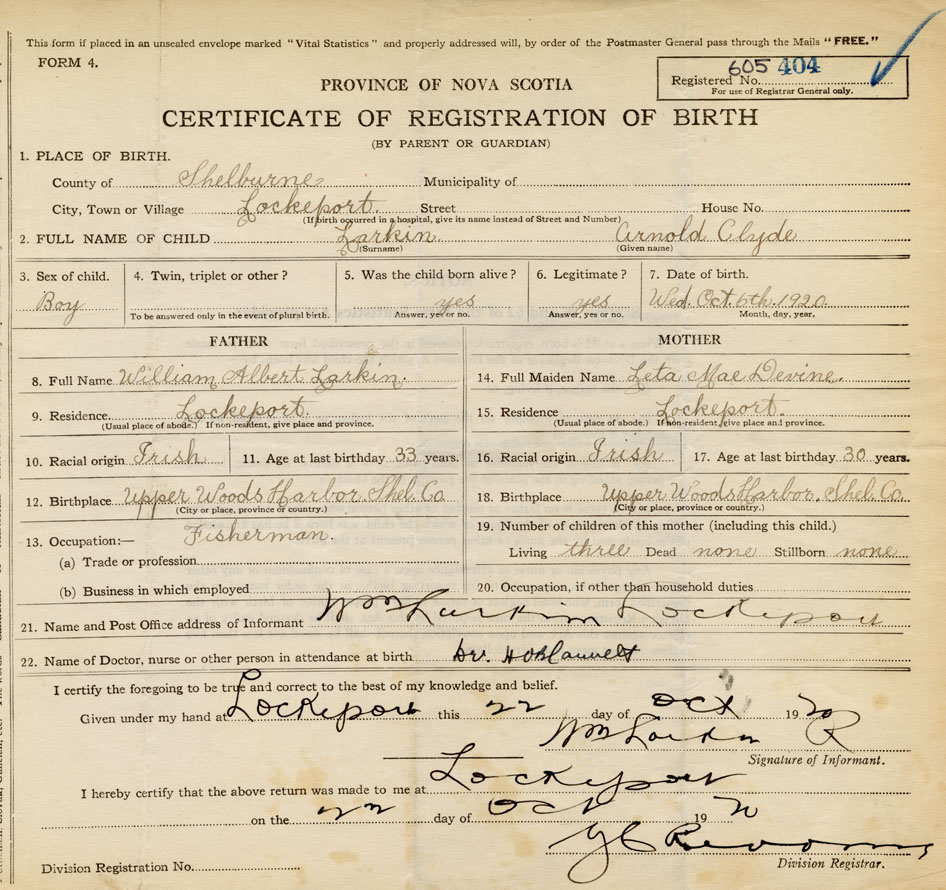 This form if placed in an unsealed envelope marked "Vital Statistics" and properly addressed will, by order of the Postmaster General pass through the Mails "FREE."
FORM 4.
605 404
Registered No.
For use of Registrar General only.
PROVINCE OF NOVA SCOTIA
CERTIFICATE OF REGISTRATION OF BIRTH
(BY PARENT OR GUARDIAN)
1. PLACE OF BIRTH.
County of Shelburne Municipality of
City, Town or Village Lockeport. Street House No.
(If birth occurred in a hospital, give its name instead of Street and Number)
2. FULL NAME OF CHILD Larkin. Arnold Clyde
(Surname) (Given name)
3. Sex of child. 4. Twin, triplet or other? 5. Was the child born alive? 6. Legitimate? 7. Date of birth.
Boy yes yes Wed. Oct. 6th. 1920.
To be answered only in the event of plural birth. Answer, yes or no. Answer, yes or no. Month, day, year.
FATHER MOTHER
8. Full Name William Albert Larkin. 14. Full Maiden Name Leta Mae Devine.
9. Residence. Lockeport. 15. Residence Lockeport.
(Usual place of abode.) If non-resident, give place and province. (Usual place of abode.) If non-resident, give place and province.
10. Racial origin Irish 11. Age at last birthday 33 years. 16. Racial origin Irish 17. Age at last birthday 30 years.
12. Birthplace Upper Woods Harbor Shel. Co 18. Birthplace Upper Woods Harbor. Shel. Co.
(City or place, province or country.) (City or place, province or country.)
13. Occupation:— Fisherman. 19. Number of children of this mother (including this child.)
(a) Trade or profession Living three Dead none Stillborn none
(b) Business in which employed 20. Occupation, if other than household duties
21. Name and Post Office address of Informant Wm Larkin Lockeport
22. Name of Doctor, nurse or other person in attendance at birth Dr. H O Blauvelt
I certify the foregoing to be true and correct to the best of my knowledge and belief.
Given under my hand at Lockeport this 22 day of Oct 1920
Wm Larkin R
Signature of Informant.
I hereby certify that the above return was made to me at Lockeport
on the 22 day of Oct 1920
Division Registration No. Division Registrar.